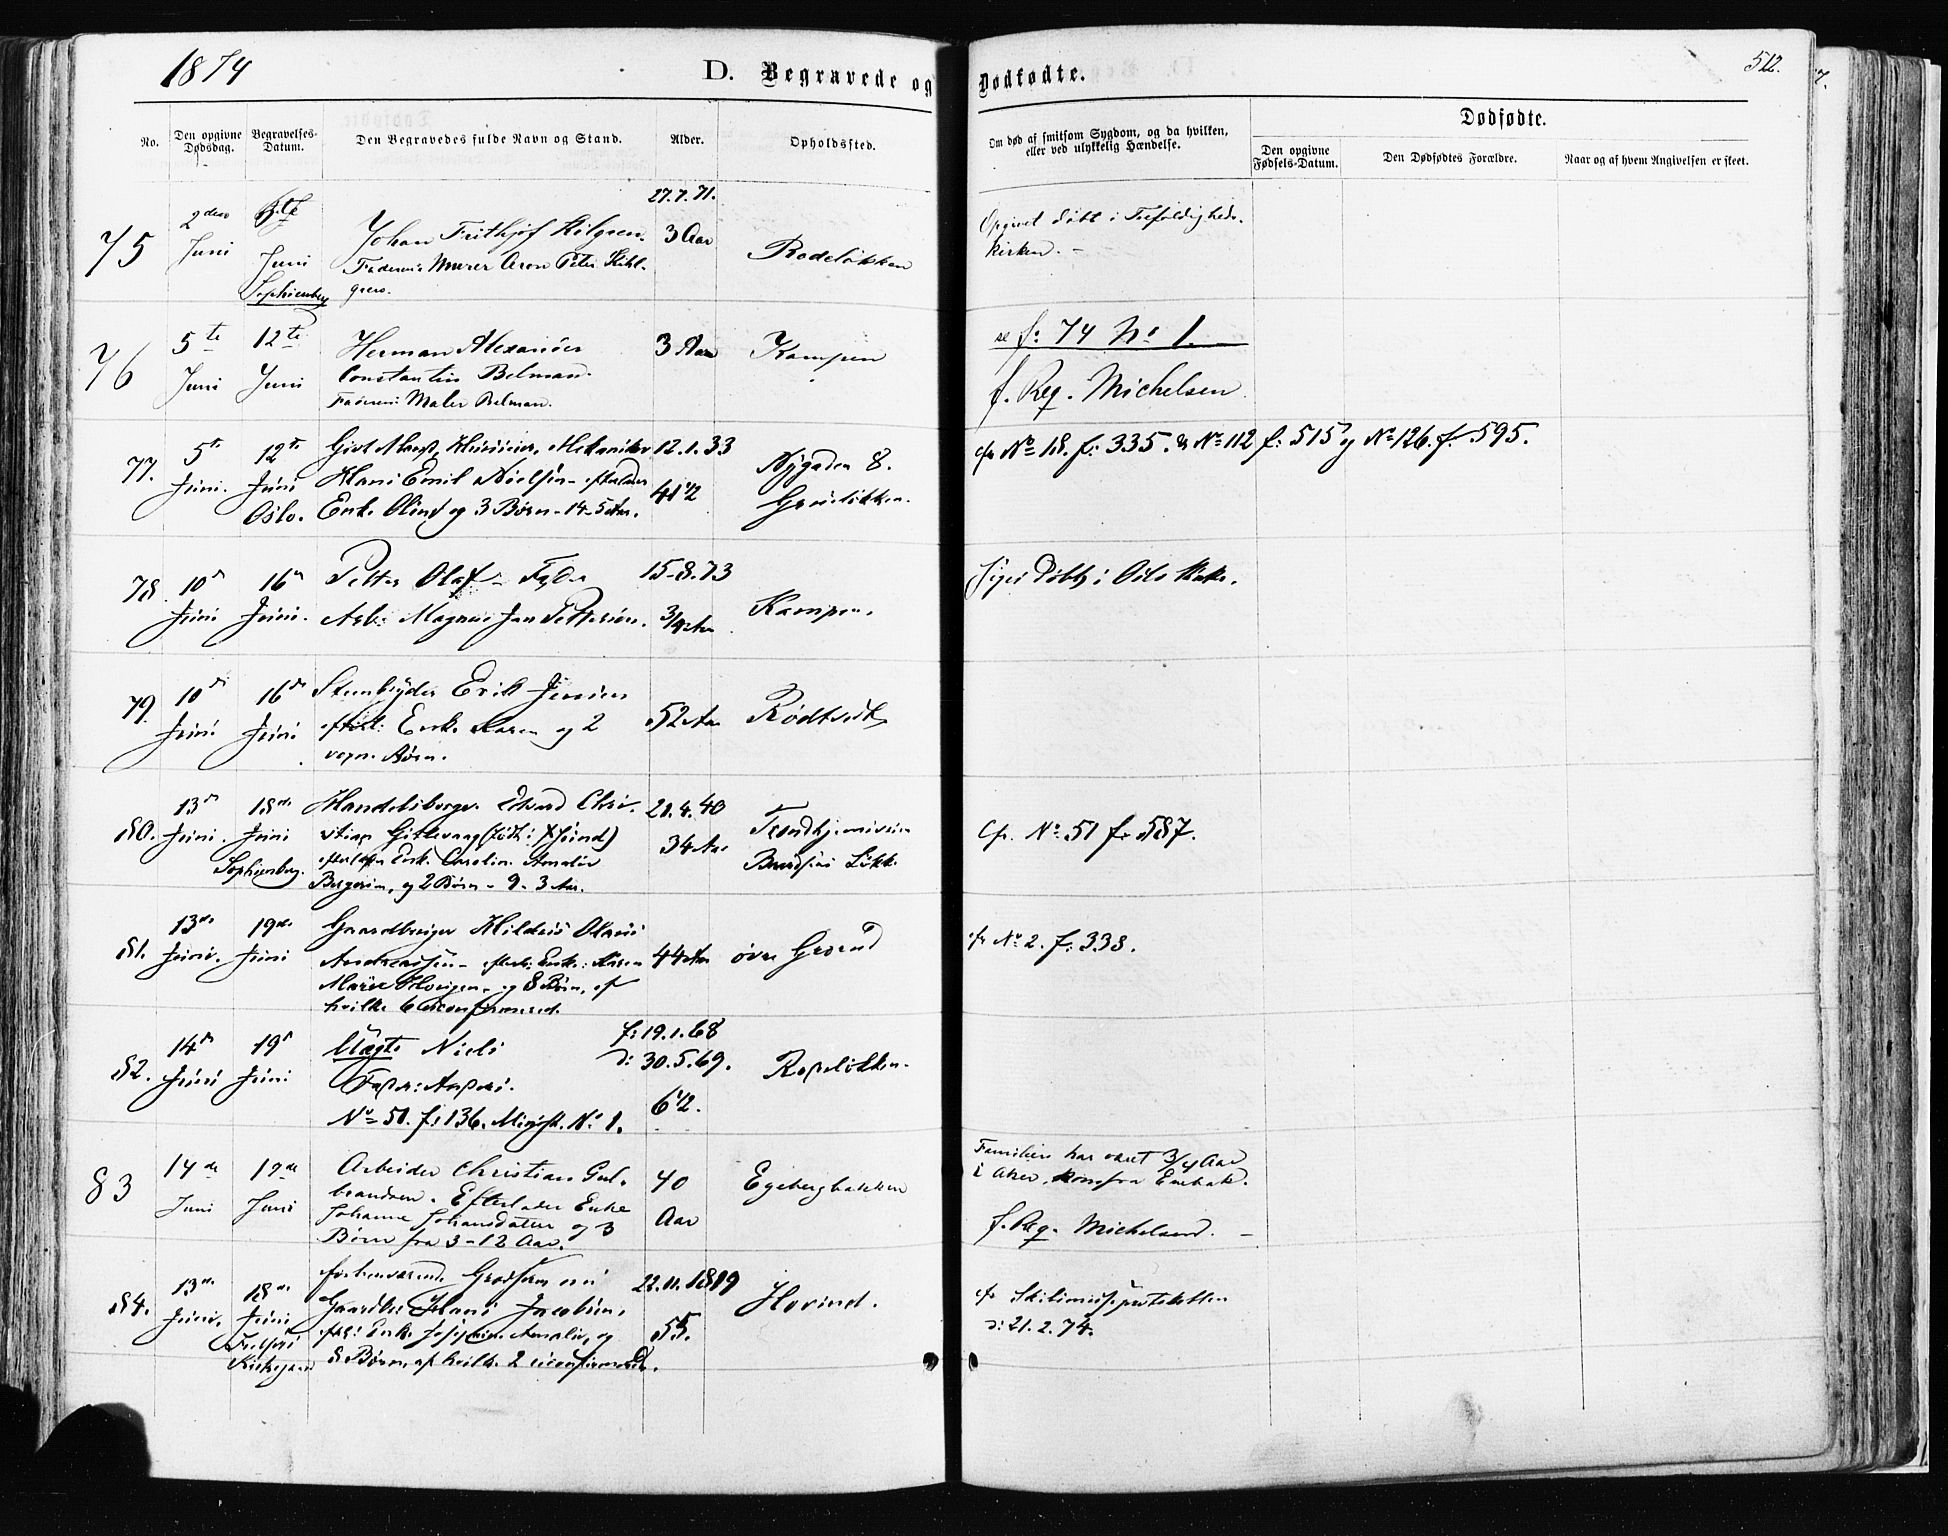 1874
D. Begravede og Dødfødte.
512.
No.
Den opgivne Dødsdag.
Begravelses-Datum.
Den Begravedes fulde Navn og Stand.
Alder.
Opholdssted.
Om død af smitsom Sygdom, og da hvilken, eller ved ulykkelig Hændelse.
Dødfødte.
Den opgivne Fødsels-Datum.
Den Dødfødtes Forældre.
Naar og af hvem Angivelsen er skeet.
75
2den Juni
Juni
Sophienberg
Johan Frithjof
Murer Aron Peter
27.7.71.
3 Aar
Rodeløkken
Opgivet døbt i Trefoldigheds-
kirken. -
76
5te Juni
12te Juni
Herman Alexander
Constantin Belman.
Faderen: Maler Belman.
3 Aar
Kampen
se f: 74 No 1.
f. Reg. Michelsen
77.
5te Juni.
12te Juni
Oslo.
Gift Mand,
Hans Emil Nielsen -
Enke Oline og 3 Børn - 14-5 Aar.
12.1.33
41 1/2
Nygaden 8.
Grünerløkken.
cfr No 18. f: 335. & No 112 f: 515 og No 126. f. 595.
78.
10de Juni
16de Juni.
Petter Olaf - Fader
Arb: Magnus Jan Pettersen.
15-8.73
3/4 Aar
Kampen.
Siges døbt i Oslo Kirke.
79.
10de Juni
16de Juni
Erik Jensen
efterl: Enke Karen og 2
voxn. Børn.
52 Aar
Rødtvedt
80.
13de Juni.
18de Juni
Sophienberg.
Handelsborger Edvard Chri-
stian
Enke Caroline Amalie
og 2 Børn - 9-3 Aar.
21.4.40
34 Aar
Trondhjemsveien
Løkke
Cfr. No 51 f. 587.
81.
13de Juni.
19de Juni
Gaardbruger
Andreassen - efterl: Enke: Karen
Marie og 8 Børn, af
hvilke 6 uconfirmered.
44 Aar
øvre Grorud
cfr No 2. f: 338.
82.
14de Juni
19de Juni
Uægte Niels
Fader: Anders.
No 51. f: 136. Minist. No 1.
f: 19.1.68
d: 30.5.69.
6 1/2.
Rodeløkken.
83
14de Juni
19de Juni
Arbeider Christian Gul-
brandsen. Efterlader Enke
Johanne Johansdatter og 3
Børn fra 3-12 Aar.
40
Aar
Egebergbakken
Familien har været 3/4 Aar
i Aker, kom fra Enebak.
f. Reg. Michelsen. -
84.
13de Juni.
18de Juni
Kirkegaard
forhenværende
Hans Jacobsen,
Enke Josephine Amalie, og
8 Børn, af hvilke 2 uconfirmered.
22.11.1819
55.
Hovind.
cfr
d: 21.2.74.